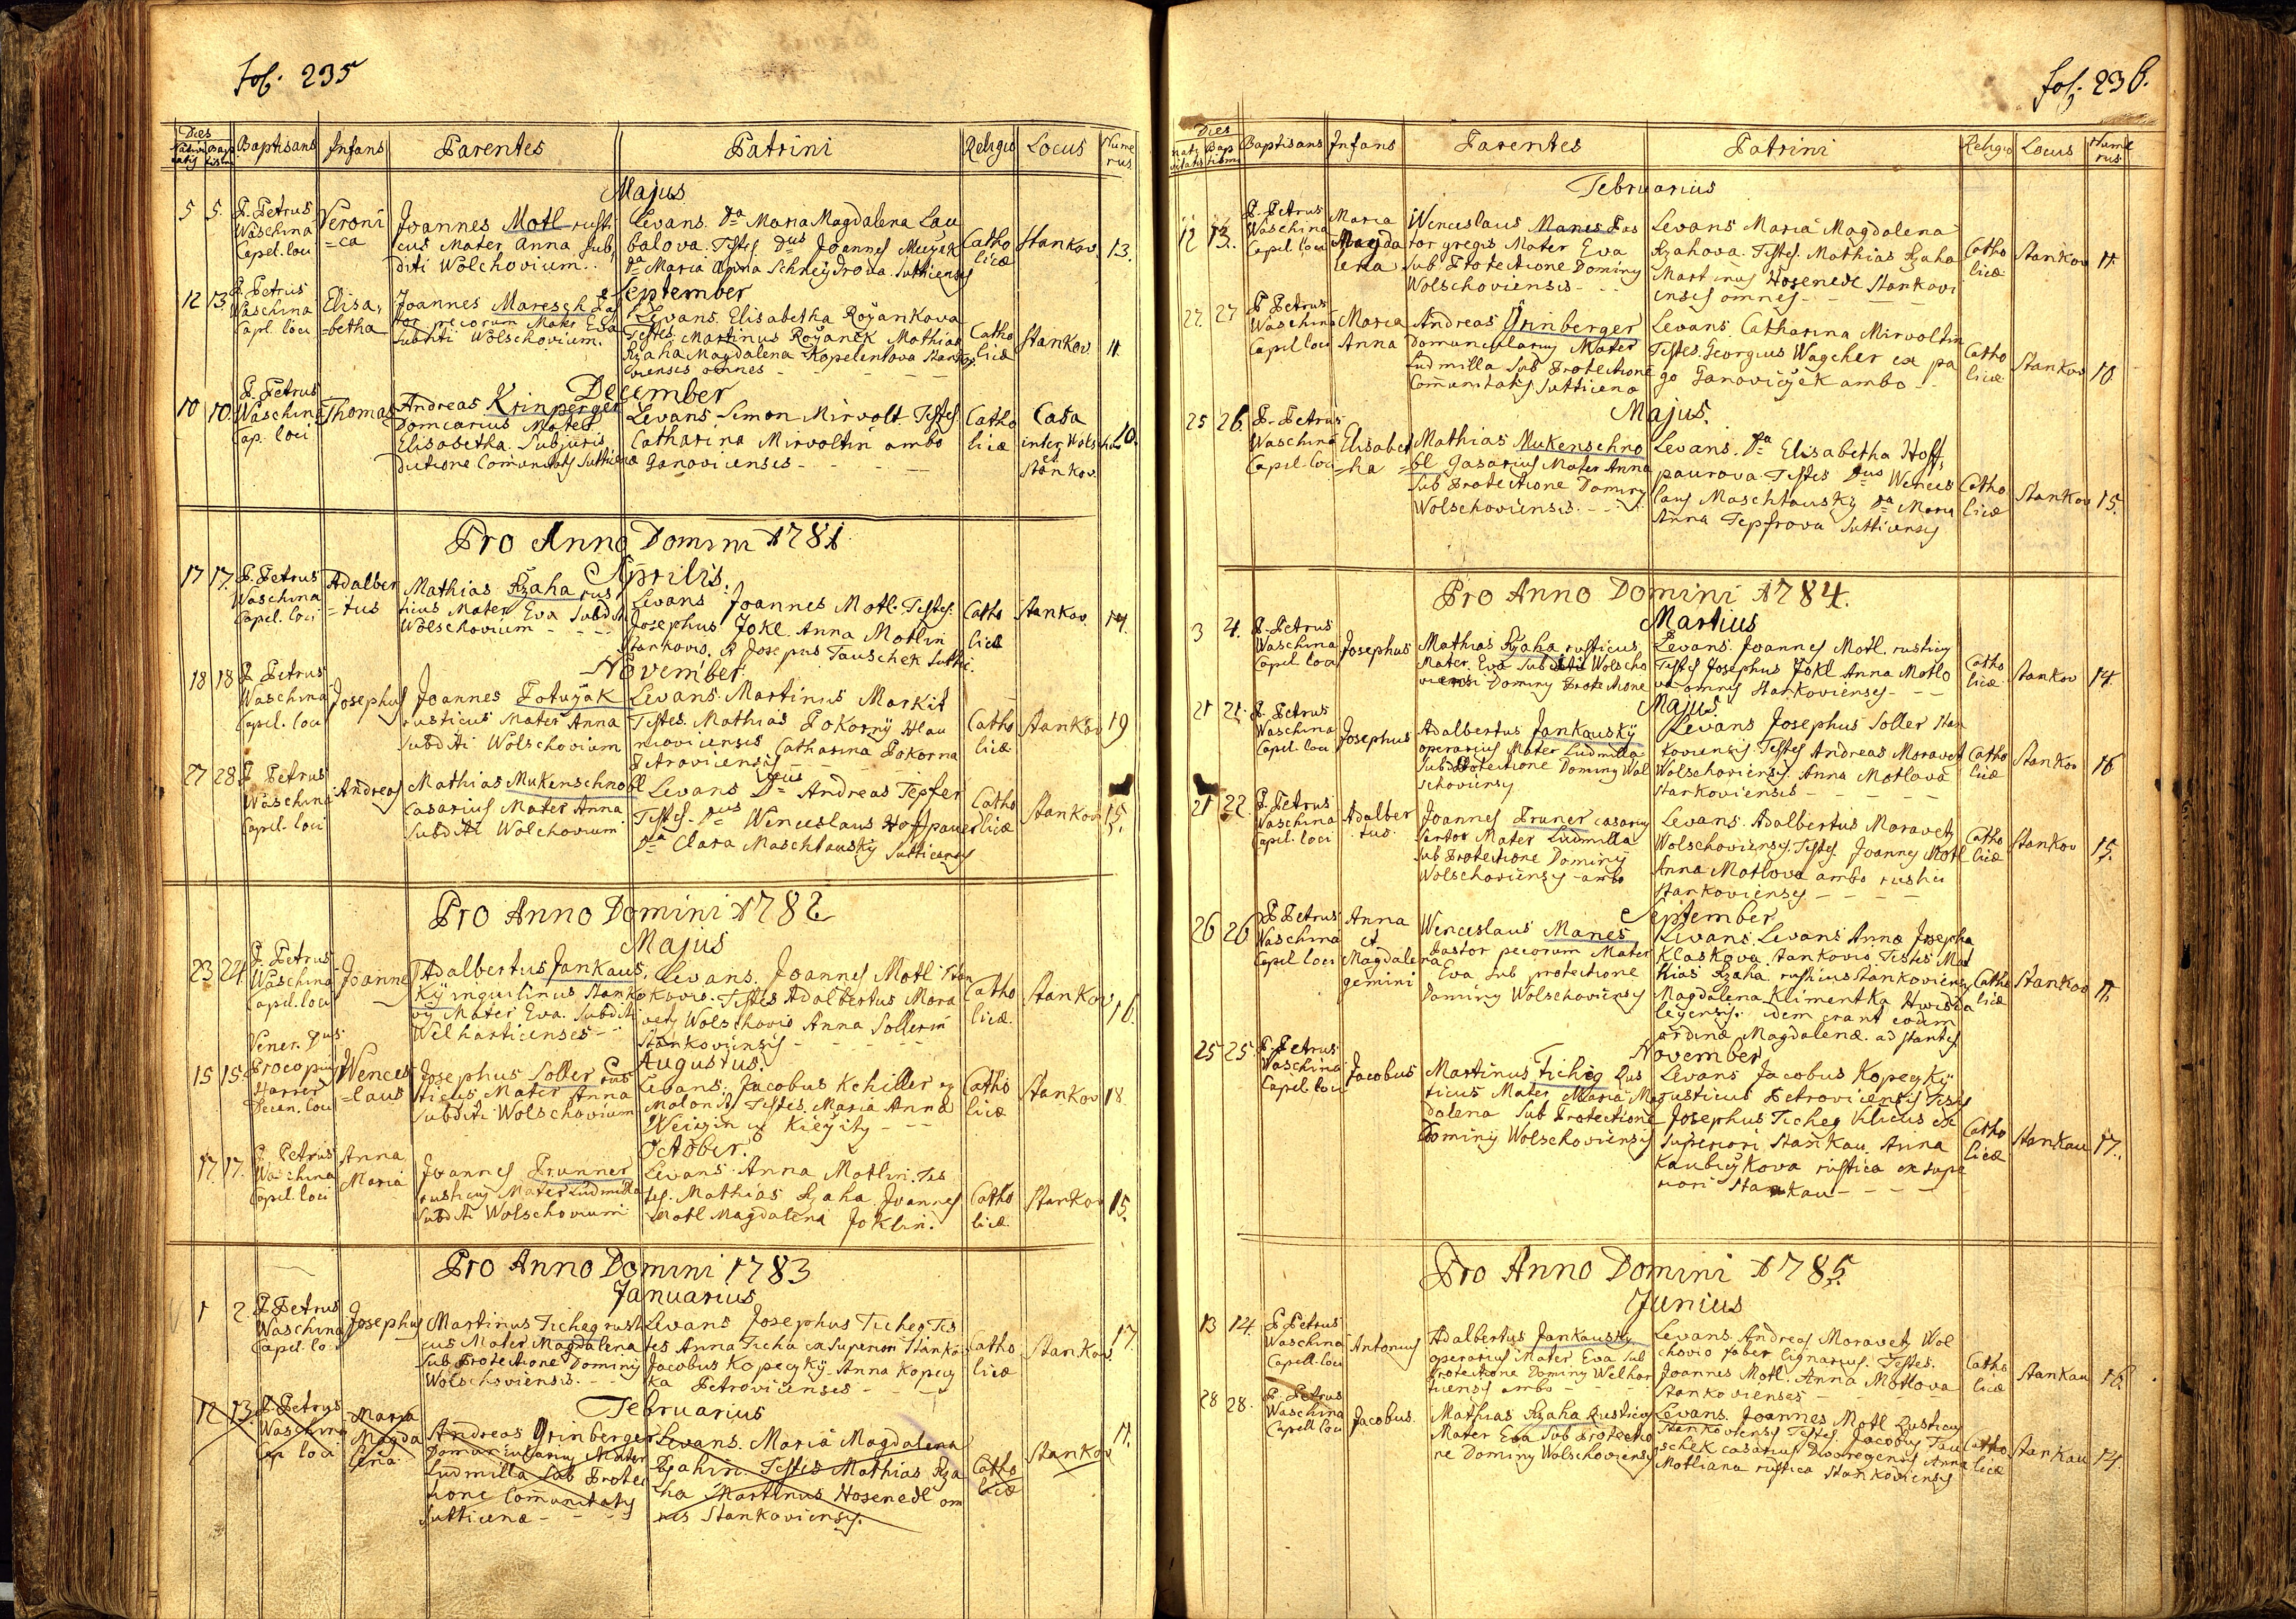 fol. 235
Dies
Nativi Bap
tatis tism
Baptisans Infans Parentes Patrini Religio Locus Nume
rus.
Majus
5 5. P. Petrus
Waschina
Capel. loci
Veroni
=ca
Joannes Motl rusti
cus Mater Anna Sub
diti Wolchovium..
Levans. Da Maria Magdalena Lau
balova. Testes Dus Joannes
Da Maria Anna Schneydrova. Sutticenses
Catho
licæ
Stankov. 13.
September
12 13. P. Petrus
Waschina
Capl. loci
Elisa,
=betha
Joannes Maresch Pas
tor pecorum Mater Eva
Subditi Wolschovium.
Levans. Elisabetha Royankova
Testes Martinus Royanek Mathias
Rzaha Magdalena Kopelentova Stanko
vienses omnes - -
Catho
licæ
Stankov. 11.
December
10 10. P. Petrus
Waschina
Cap. loci
Thomas
Andreas Krinperger
Domcarius Mater
Elisabetha. Subjuris
dictione Comunitatis Sutticenæ
Levans Simon Mirvolt Testes
Catharina Mirvoltin ambo
Ganovicenses - - -
Catho
licæ
Casa
inter Wols
et
Stankov.
10.
Pro Anno Domini 1781
Aprilis.
17 17. P. Petrus
Waschina
Capel. loci
Adalber
=tus
Mathias Rzaha rus
ticus Mater Eva Subditi
Wolschovium - - -
Levans Joannes Motl. Testes.
Josephus Jokl. Anna Motlin
Stankovis. & Josepus Tauschek Sutti.
Catho
licæ
Stankov. 14.
November.
18 18 P. Petrus
Waschina
Capel. loci
Josephus
Joannes Potuzak
rusticus Mater Anna
Subditi Wolschovium
Levans. Martinus Markit
Testes. Mathias Pokorny Hlau
Catharina Pokorna
Petroviciensis - - -
Catho
licæ
Stankov 19
27 28 P. Petrus
Waschina
Capel. loci
Andreas
Mathias Mukenschnobl
Casarius Mater Anna
Subditi Wolchovium
Levans Dus Andreas Tepfer
Testes. Dus Wenceslaus Hoffpauer
Da Clara Maschtausky Sutticenses
Catho
licæ
Stankov 15.
Pro Anno Domini 1782
Majus
23 24. P. Petrus
Waschina
Capel. loci
Joannes
Adalbertus Jankaus,
ky inquilinus Stanko
vy Mater Eva. Subditi
Welharticenses - -
Levans. Joannes Motl Stan
kovis. Testes Adalbertus Mora
vetz Wolschovio Anna Sollerin
Stankoviensis - - -
Catho
licæ.
Stankov 16.
Augustus.
15 15. Vener. Dus
Procopius
Harrer
Decan. loci
Wences
=laus
Josephus Soller rus
ticus Mater Anna
Subditi Wolschovium
Levans. Jacobus Kchiller ex
Testes. Maria Anna
Catho
licæ
Stankov 18.
October.
17. 17. P. Petrus
Waschina
Capel. loci
Anna
Maria
Joannes Prunner
rusticus Mater Ludmilla
Subditi Wolschovium
Levans. Anna Motlin. Tes
tes. Mathias Rzaha Joannes
Motl Magdalena Joklin.
Catho
licæ
Stankov 15.
Pro Anno Domini 1783
Januarius
1 2. P. Petrus
Waschina
Capel. loci
Josephus
Martinus Ticheg rusti
cus Mater Magdalena
Sub Protectione Dominy
Wolschoviensis. - -
Levans Josephus Ticheg Tes
tes Anna Ticha ex Superiori Stankov
Jacobus Kopecky. Anna Kopecz
ka Petrovicenses - - -
Catho
licæ
Stankov. 17.
Februarius
12 13. P. Petrus
Waschina
Cap loci
Maria
Magda
lena
Andreas Grinberger
Domuncularius Mater
Ludmilla Sub Protec
tione Communitatis
Sutticenæ - - -
Levans. Maria Magdalena
Rzahin. Testes Mathias Rza
ha Martinus Hosenedl om
nes Stankovienses.
Catho
licæ
Stankov 11.
fol. 236.
Dies
Nati Bap
vitatis tismi
Baptisans Infans Parentes Patrini Religio Locus Nume
rus
Februarius
12 13. P. Petrus
Waschina
Capel. loci
Maria
Magda
lena
Wenceslaus Manes Pas
tor gregis Mater Eva
Sub Protectione Dominy
Wolschoviensis - - -
Levans Maria Magdalena
Rzahova. Testes. Mathias Rzaha
Martinus Hosenedl Stankovi
enses omnes - - -
Catho
licæ
Stankov 11.
27. 27 P Petrus
Waschina
Capel loci
Maria
Anna
Andreas Grinberger
Domuncularius Mater
Ludmilla Sub Protectione
Comunitatis Sutticena
Levans Catharina Mirvoltin
Testes. Georgius Wagcher ex pa
go Ganoviczek ambo - -
Catho
licæ
Stankov 10.
Majus.
25 26. P. Petrus
Waschina
Capel. loci
Elisabet
=ha
Mathias Mukenschno
=bl Gasarius Mater Anna
Sub Protectione Dominy
Wolschoviensis. - - -
Levans. Da Elisabetha Hoff,
paurova. Testes Dus Wences
laus Maschtausky Da Maria
Anna Tepfrova Sutticenses
Catho
licæ
Stankov 15.
Pro Anno Domini 1784.
Martius
3 4. P. Petrus
Waschina
Capel loci
Josephus
Mathias Rzaha rusticus
Mater. Eva Subditi Wolscho
viensi Dominy Protectione
Levans. Joannes Motl. rusticus
Testes Josephus Jokl Anna Motlo
va omnes Stankovienses - -
Catho
licæ.
Stankov 14.
Majus.
21 21. P. Petrus
Waschina
Capel. loci
Josephus
Adalbertus Jankausky
operarius Mater Ludmilla.
Sub Protectione Dominy Wol
schoviensis
Levans Josephus Soller Stan
koviensis. Testes Andreas Moravet
Wolschoviensis. Anna Motlova
Stankoviensis - - -
Catho
licæ
Stankov 16
21 22. P. Petrus
Waschina
Capel. loci
Adalber
tus.
Joannes Pruner casarius
Sartor Mater Ludmilla
Sub Protectione Dominy
Wolschoviensis - ambo
Levans. Adalbertus Moravetz
Wolschoviensis. Testes. Joannes Motl
Anna Motlova ambo rustici
Stankovienses - - -
Catho
licæ
Stankov 15.
September
26 26 P Petrus
Waschina
Capel loci
Anna
et
Magdalena
gemini
Wenceslaus Manes
Pastor pecorum Mater
Eva Sub protectione
Dominy Wolschoviensis
Levans. Levans Anna Josepha
Klaskova Stankovio Testes Mat
thias Rzaha rusticus Stankoviensis
Magdalena Klimentka
idem erant eodem
ordine Magdalenæ. adstantes
Catho
licæ
Stankov 11.
November
25 25. P. Petrus
Waschina
Capel. loci
Jacobus
Martinus Ticheg Rus
ticus Mater Maria Mag
dalena Sub Protectione
Dominy Wolschoviensis
Levans Jacobus Kopecky
rusticus Petroviciensis Testes
Josephus Ticheg Villicus ex
Superiori Stankau. Anna
Kaubczykova rustica ex supe
riori Stankau - - - -
Catho
licæ
Stankau 17.
Pro Anno Domini 1785.
Junius
13 14. P Petrus
Waschina
Capell. loci
Antonius
Adalbertus Jankausky
operarius Mater Eva Sub
Protectione Dominy Welhar
ticensis ambo - - -
Levans. Andreas Moravetz Wol
chovio faber lignarius. Testes.
Joannes Motl. Anna Motlova
Stankovienses - - -
Catho
licæ
Stankau 16.
28 28. P. Petrus
Waschina
Capell loci
Jacobus.
Mathias Rzaha Rusticus
Mater Eva Sub Protectio
ne Dominy Wolschoviensis
Levans. Joannes Motl Rusticus
Stankoviensis Testes. Jacobus Tau
schek casarius Dworegensis Anna
Motliana rustica Stankoviensis
Catho
licæ
Stankau 14.